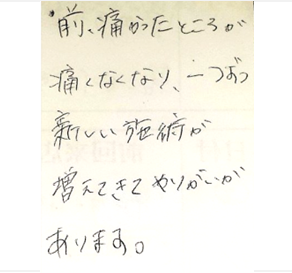 前、痛かったところが
痛くなくなり、一つずつ
新しい施術が
増えてきてやりがいが
あります。